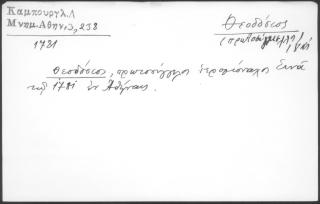 Καμπούρογλ.Λ
Μνημ.Αθην.3,238
1781
Θεοδόσιος
(πρωτοσύγκελλ
Θεοδόσιος, πρωτοσύγγελος ιερομόναχος Σινᾶ
τῷ 1781 ἐν Ἀθήναις.